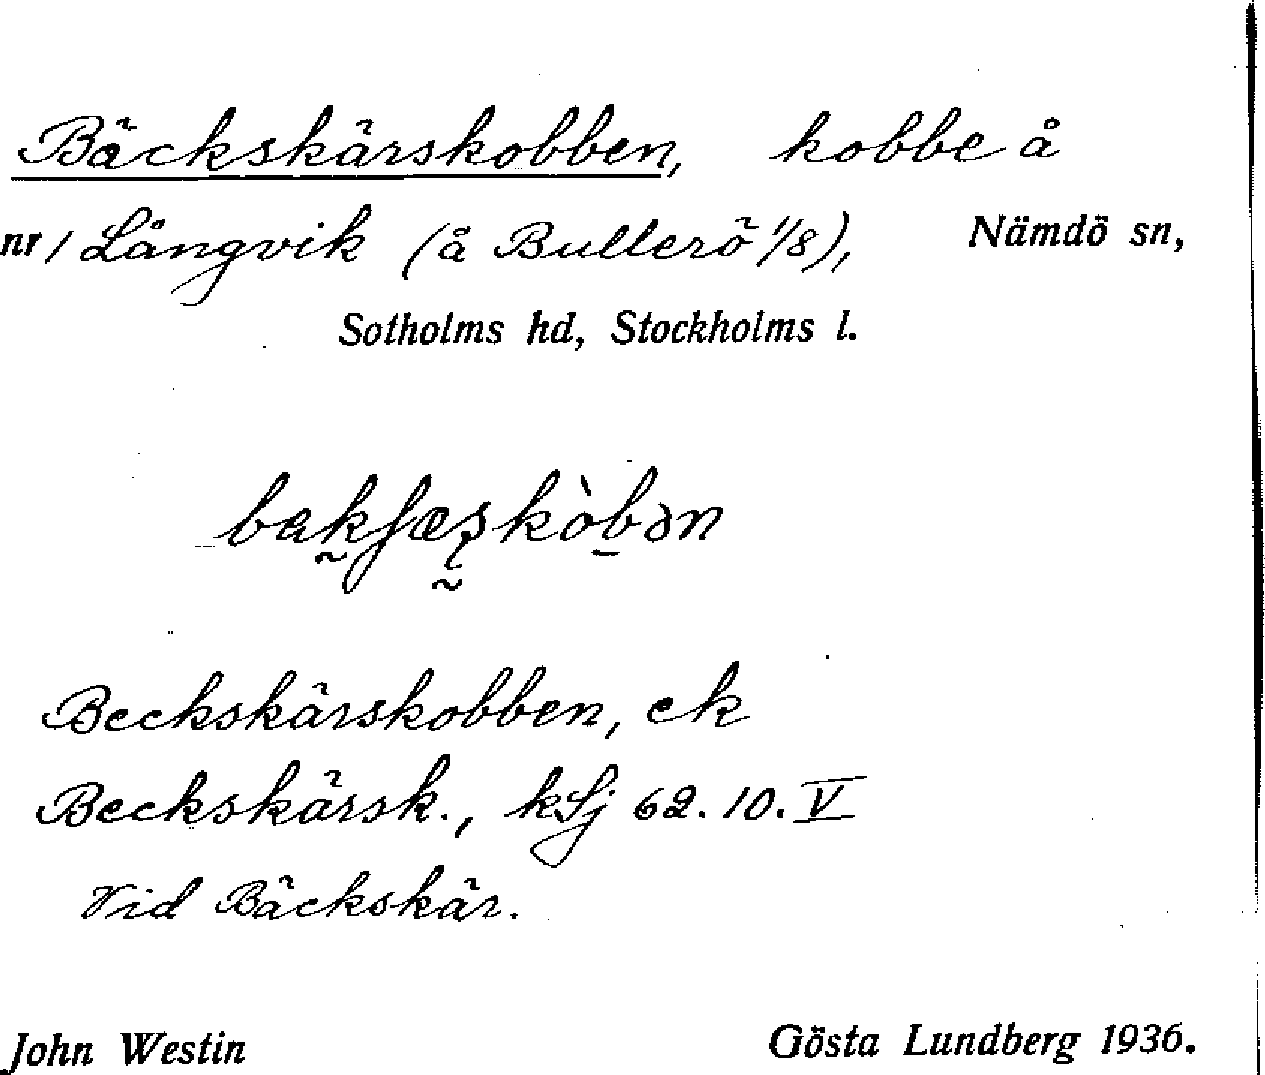 Bäckskärskobben, kobbe å
nr 1 Långvik (å Bullerö 1/8), Nämdö sn,
Sotholms hd, Stockholms l.
Beckskärskobben, ek
Beckskärsk., kSj 62.10.V
Vid Bäckskär.
John Westin Gösta Lundberg 1936.